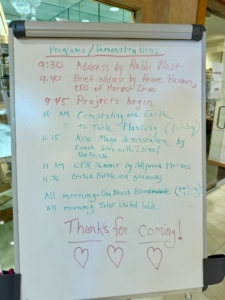 Programs / Demonstrations
9:30 Address by Rabbi Wolf
9:40 Brief address by
CEO of Harvest Drive
9:45 Projects begin
10 AM Composting and Earth
to Table Planting (lobby)
10:15 Krav Maga demonstration by
with Israeli
Defense
11 AM CPR by Hollywood Heroes
11:30 Raffle and giveaway
All morning: One Blood Bloodmobile
All morning United Table
Thanks for coming!